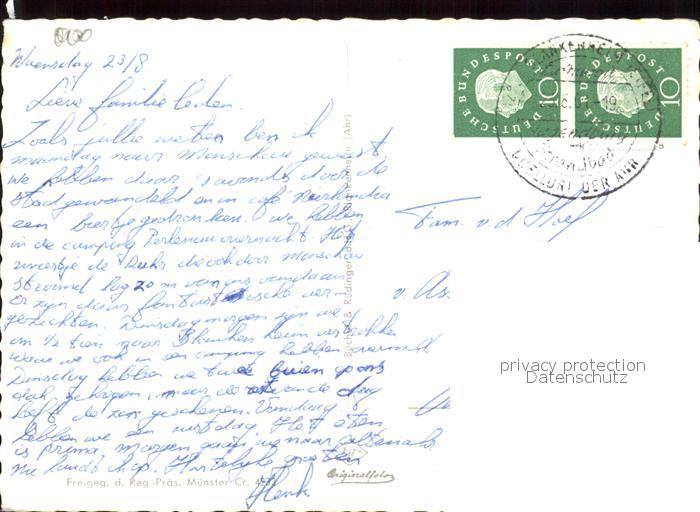 Woensdag 23/8
Lieve familie leden.
Zoals jullie weten ben ik
maandag naar Monschau geweest
we hebben daar 's avonds door de
stad gewandeld en in café
een biertje gedronken. We hebben
in de camping Perlenau overnacht. Het
de Ruhr die door Monschau
stroomt lag 20 m van ons vandaan
er zijn daar fantastische ver-
gezichten. Dinsdagmorgen zijn we
om 1/2 tien naar Blankenheim vertrokken
waar we ook in een camping hebben overnacht
Dinsdag hebben we twee buien op ons
dak gekregen, maar de
heeft de zon geschenen. Vandaag
hebben we een rustdag. Het eten
is prima morgen gaan we naar Altenahr
Hartelijke groeten
Henk
Fam. v. d. Hoef
v. As
DEUTSCHE BUNDESPOST
10
DEUTSCHE BUNDESPOST
10
AHR
Freigeg. d. Reg.-Präs. Münster Cr.
Originalfoto
privacy protection
Datenschutz